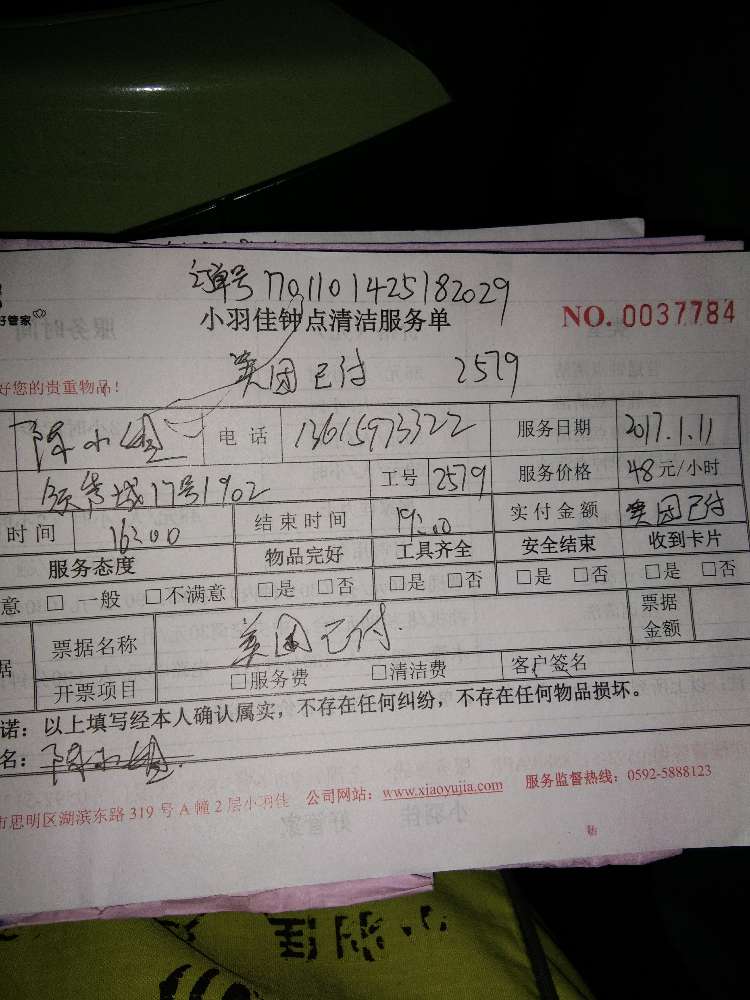 订单号 7701101425182029
好管家
小羽佳钟点清洁服务单 NO. 0037784
好您的贵重物品！ 美团已付 2579
陈小 电话 13615973322 服务日期 2017.1.11
城17号1902 工号 2579 服务价格 48元/小时
时间 16:00 结束时间 19:00 实付金额 美团已付
服务态度 物品完好 工具齐全 安全结束 收到卡片
意 □ 一般 □不满意 □是 □否 □是 □否 □是 □否 □是 □否
据 票据名称 美团已付. 票据金额
开票项目 □服务费 □清洁费 客户签名
诺：以上填写经本人确认属实，不存在任何纠纷，不存在任何物品损坏。
名：陈小
市思明区湖滨东路 319 号 A 幢 2 层小羽佳 公司网站：www.xiaoyujia.com 服务监督热线：0592-5888123
小羽佳